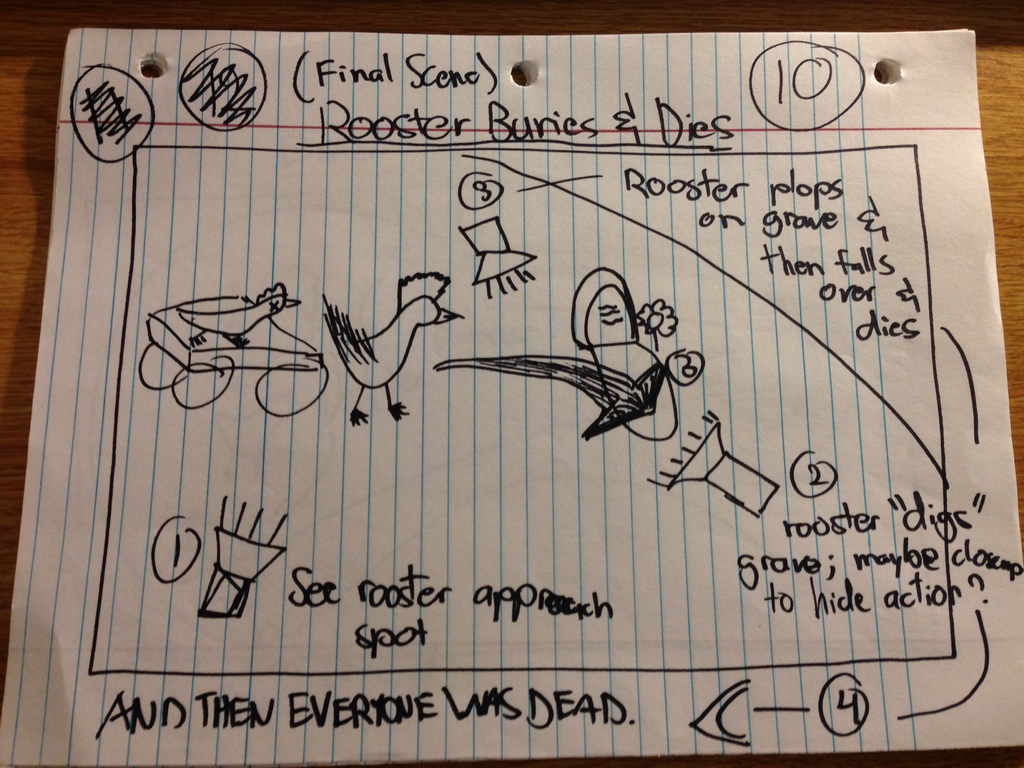 (Final Scene)
10
Rooster Buries & Dies
3
Rooster plops
on grave &
then falls
over &
dies
3
2
rooster "digs"
grave; maybe closeup
to hide action?
1
See rooster approach
spot
AND THEN EVERYONE WAS DEAD.
4